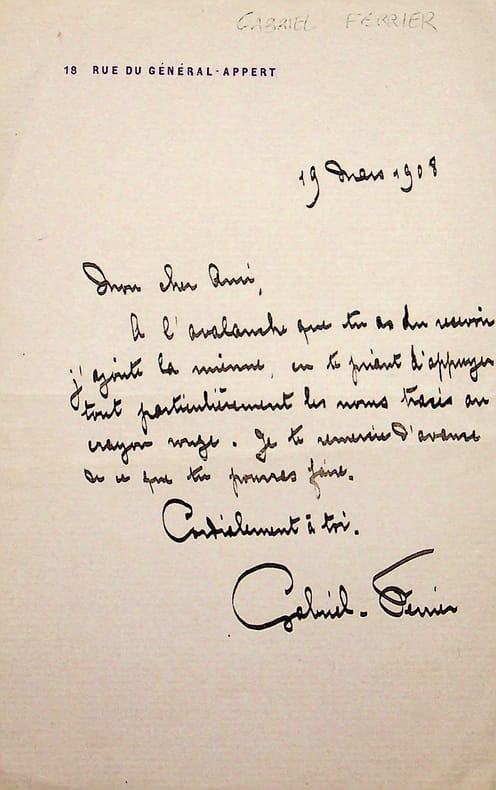 GABRIEL FERRIER
18 RUE DU GÉNÉRAL-APPERT
19 Mars 1908
Mon cher Ami,
A l'avalanche que tu as du recevoir
j'ajoute la mienne, en te priant d'appuyer
tout particulièrement les noms tracés au
crayon rouge. Je te remercie d'avance
de ce que tu pourras faire.
Cordialement à toi.
Gabriel-Ferrier